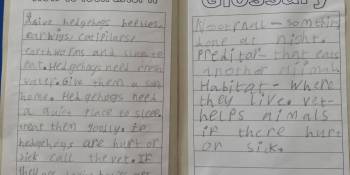 Glossary
Give hedgehogs beetles,
earwigs, catipilars
earthworms and slugs to
eat. Hedgehogs need fresh
water. Give them a
home. Hedgehogs need
a quiet place to sleep.
treat them
hedgehogs are hurt or
sick call the vet. If
Nocturnal - somethin
done at night.
Preditor - that eats
another animal
Habitat - Where
they live. vet -
helps animals
if there hurt
or sick.